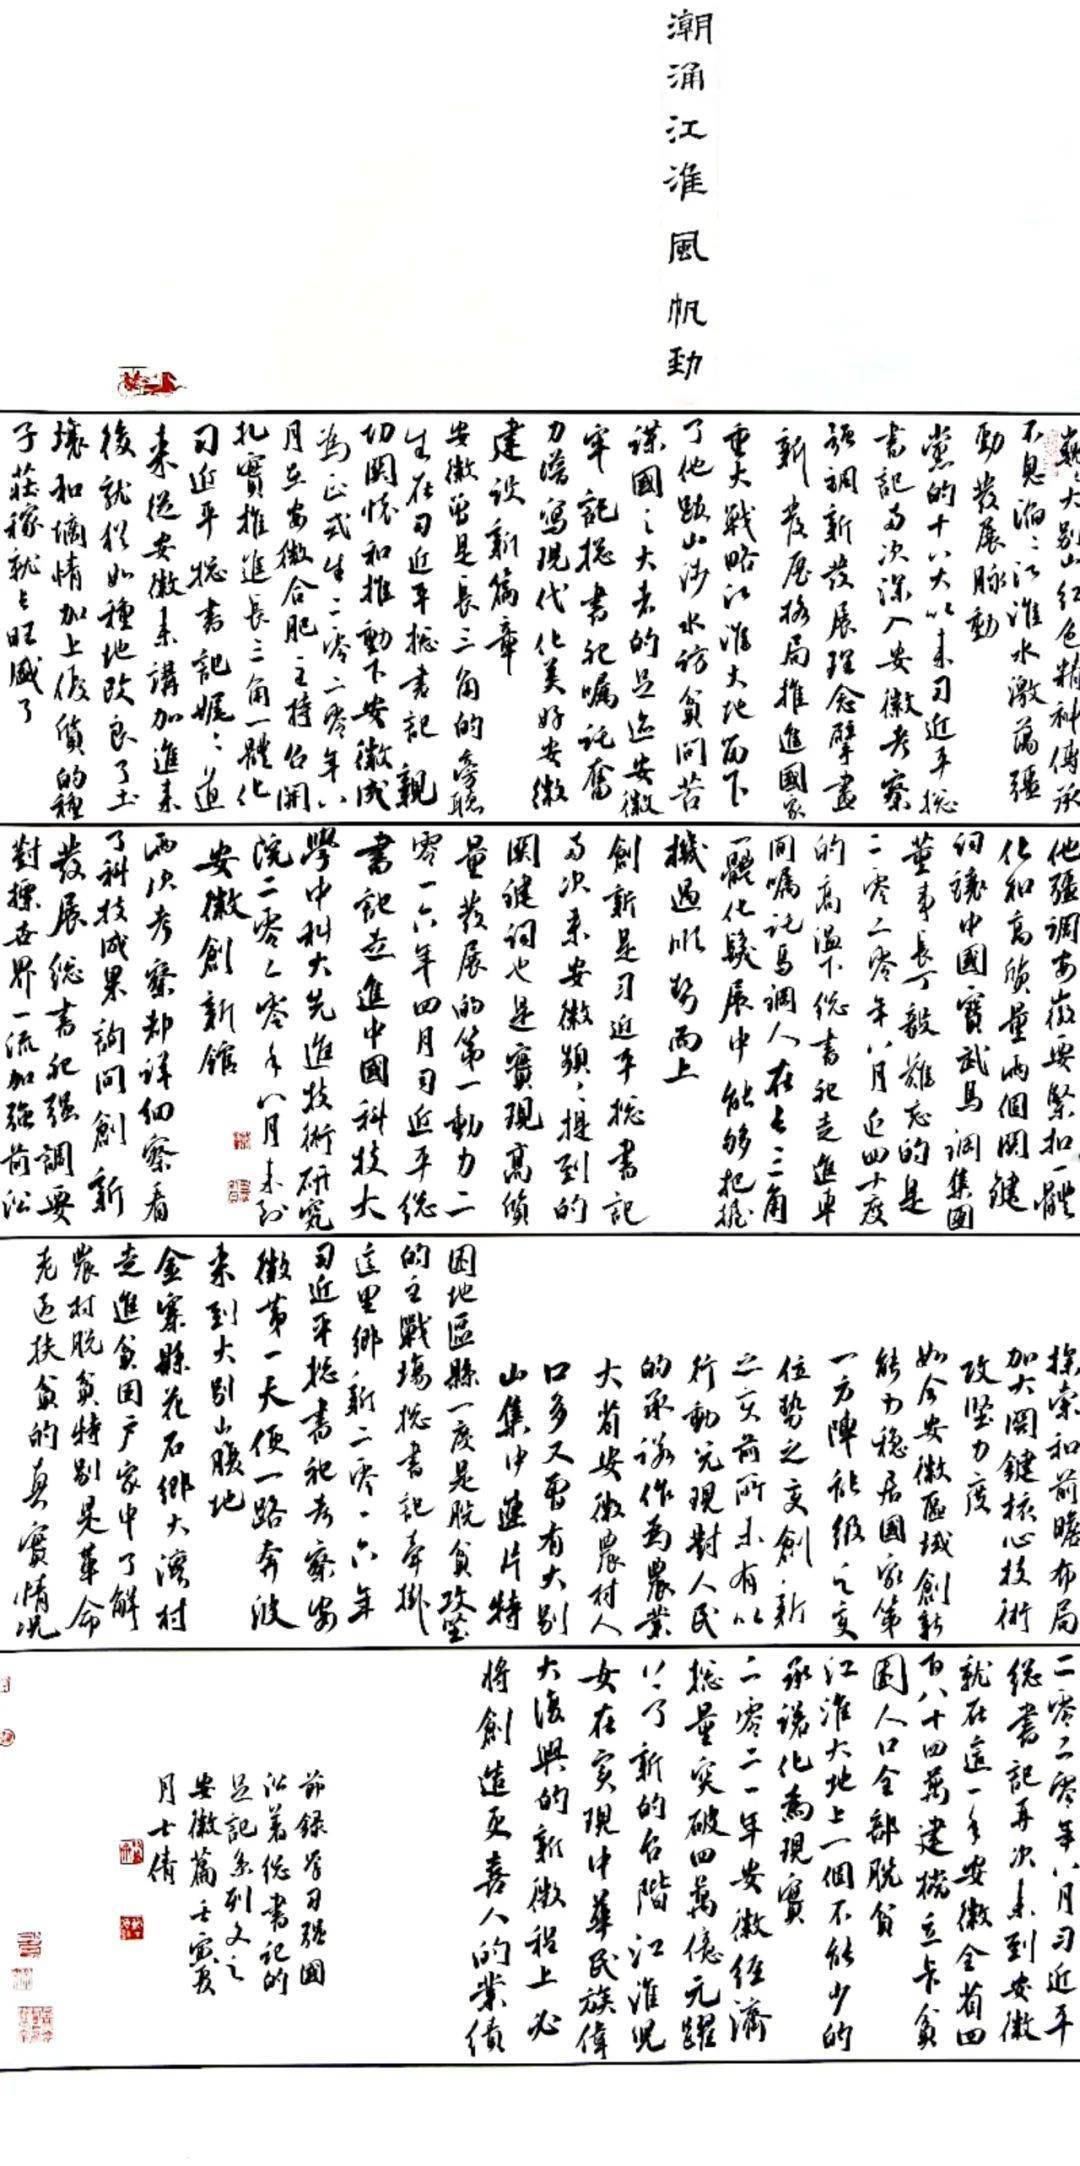 潮涌江淮風帆勁
巍巍大别山紅色精神傳承
不息滔滔江淮水激蕩強
勁發展脉動
黨的十八大以来习近平总
書記多次深入安徽考察
强調新發展理念擘畫
新發展格局推進國家
重大戰略江淮大地留下
了他跋山涉水訪貧問苦
謀國之大者的足迹安徽
牢記总書記囑託奮
力譜寫現代化美好安徽
建設新篇章
安徽曾是長三角的旁聽
生在习近平总書記親
切関懷和推動下安徽成
為正式生二零二零年八
月在安徽合肥主持召開
扎實推進長三角一體化
习近平总書記娓娓道
来從安徽来講加進来
後就猶如種地改良了土
壤和墒情加上優質的種
子莊稼就长旺盛了
他强調安徽要緊扣一體
化和高質量两個関鍵
詞讓中國寶武馬鋼集團
董事長丁毅難忘的是
二零二零年八月近四十度
的高温下总書記走進車
間囑託馬鋼人在长三角
一體化發展中能够把握
機遇順势而上
創新是习近平总書記
多次来安徽頻頻提到的
関鍵詞也是實現高質
量發展的第一動力二
零一六年四月习近平总
書記走進中國科技大
學中科大先進技術研究
院二零二零年八月来到
安徽創新館
两次考察都詳细察看
了科技成果詢問創新
發展总書記强調要
對標世界一流加强前沿
探索和前瞻布局
加大関鍵核心技術
攻堅力度
如今安徽區域創新
能力穩居國家第
一方陣能级之变
位勢之变創新
之变前所未有以
行動兑現對人民
的承諾作為農業
大省安徽農村人
口多又曾有大别
山集中連片特
困地區縣一度是脱貧攻堅
的主戰場总書記牵掛
這里鄉親二零一六年
习近平总書記考察安
徽第一天便一路奔波
来到大别山腹地
金寨縣花石鄉大灣村
走進貧困户家中了解
農村脱貧特别是革命
老區扶貧的真實情况
二零二零年八月习近平
总書記再次来到安徽
就在這一年安徽全省四
百八十四萬建檔立卡貧
困人口全部脱貧
江淮大地上一個不能少的
承諾化為現實
二零二一年安徽经濟
总量突破四萬億元躍
上了新的台階江淮兒
女在實現中華民族偉
大復興的新徵程上必
将創造更喜人的業績
節錄学习强國
沿着总書記的
足記系列文之
安徽篇壬寅夏
月士倩